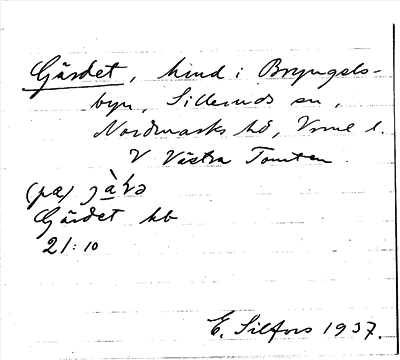 Gärdet, hmd i Bryngels-
byn, Silleruds sn,
Nordmarks hd, Vrml l.
V Västra Tomten
(pæ)
Gärdet kb
21:10
E. Silfors 1937.